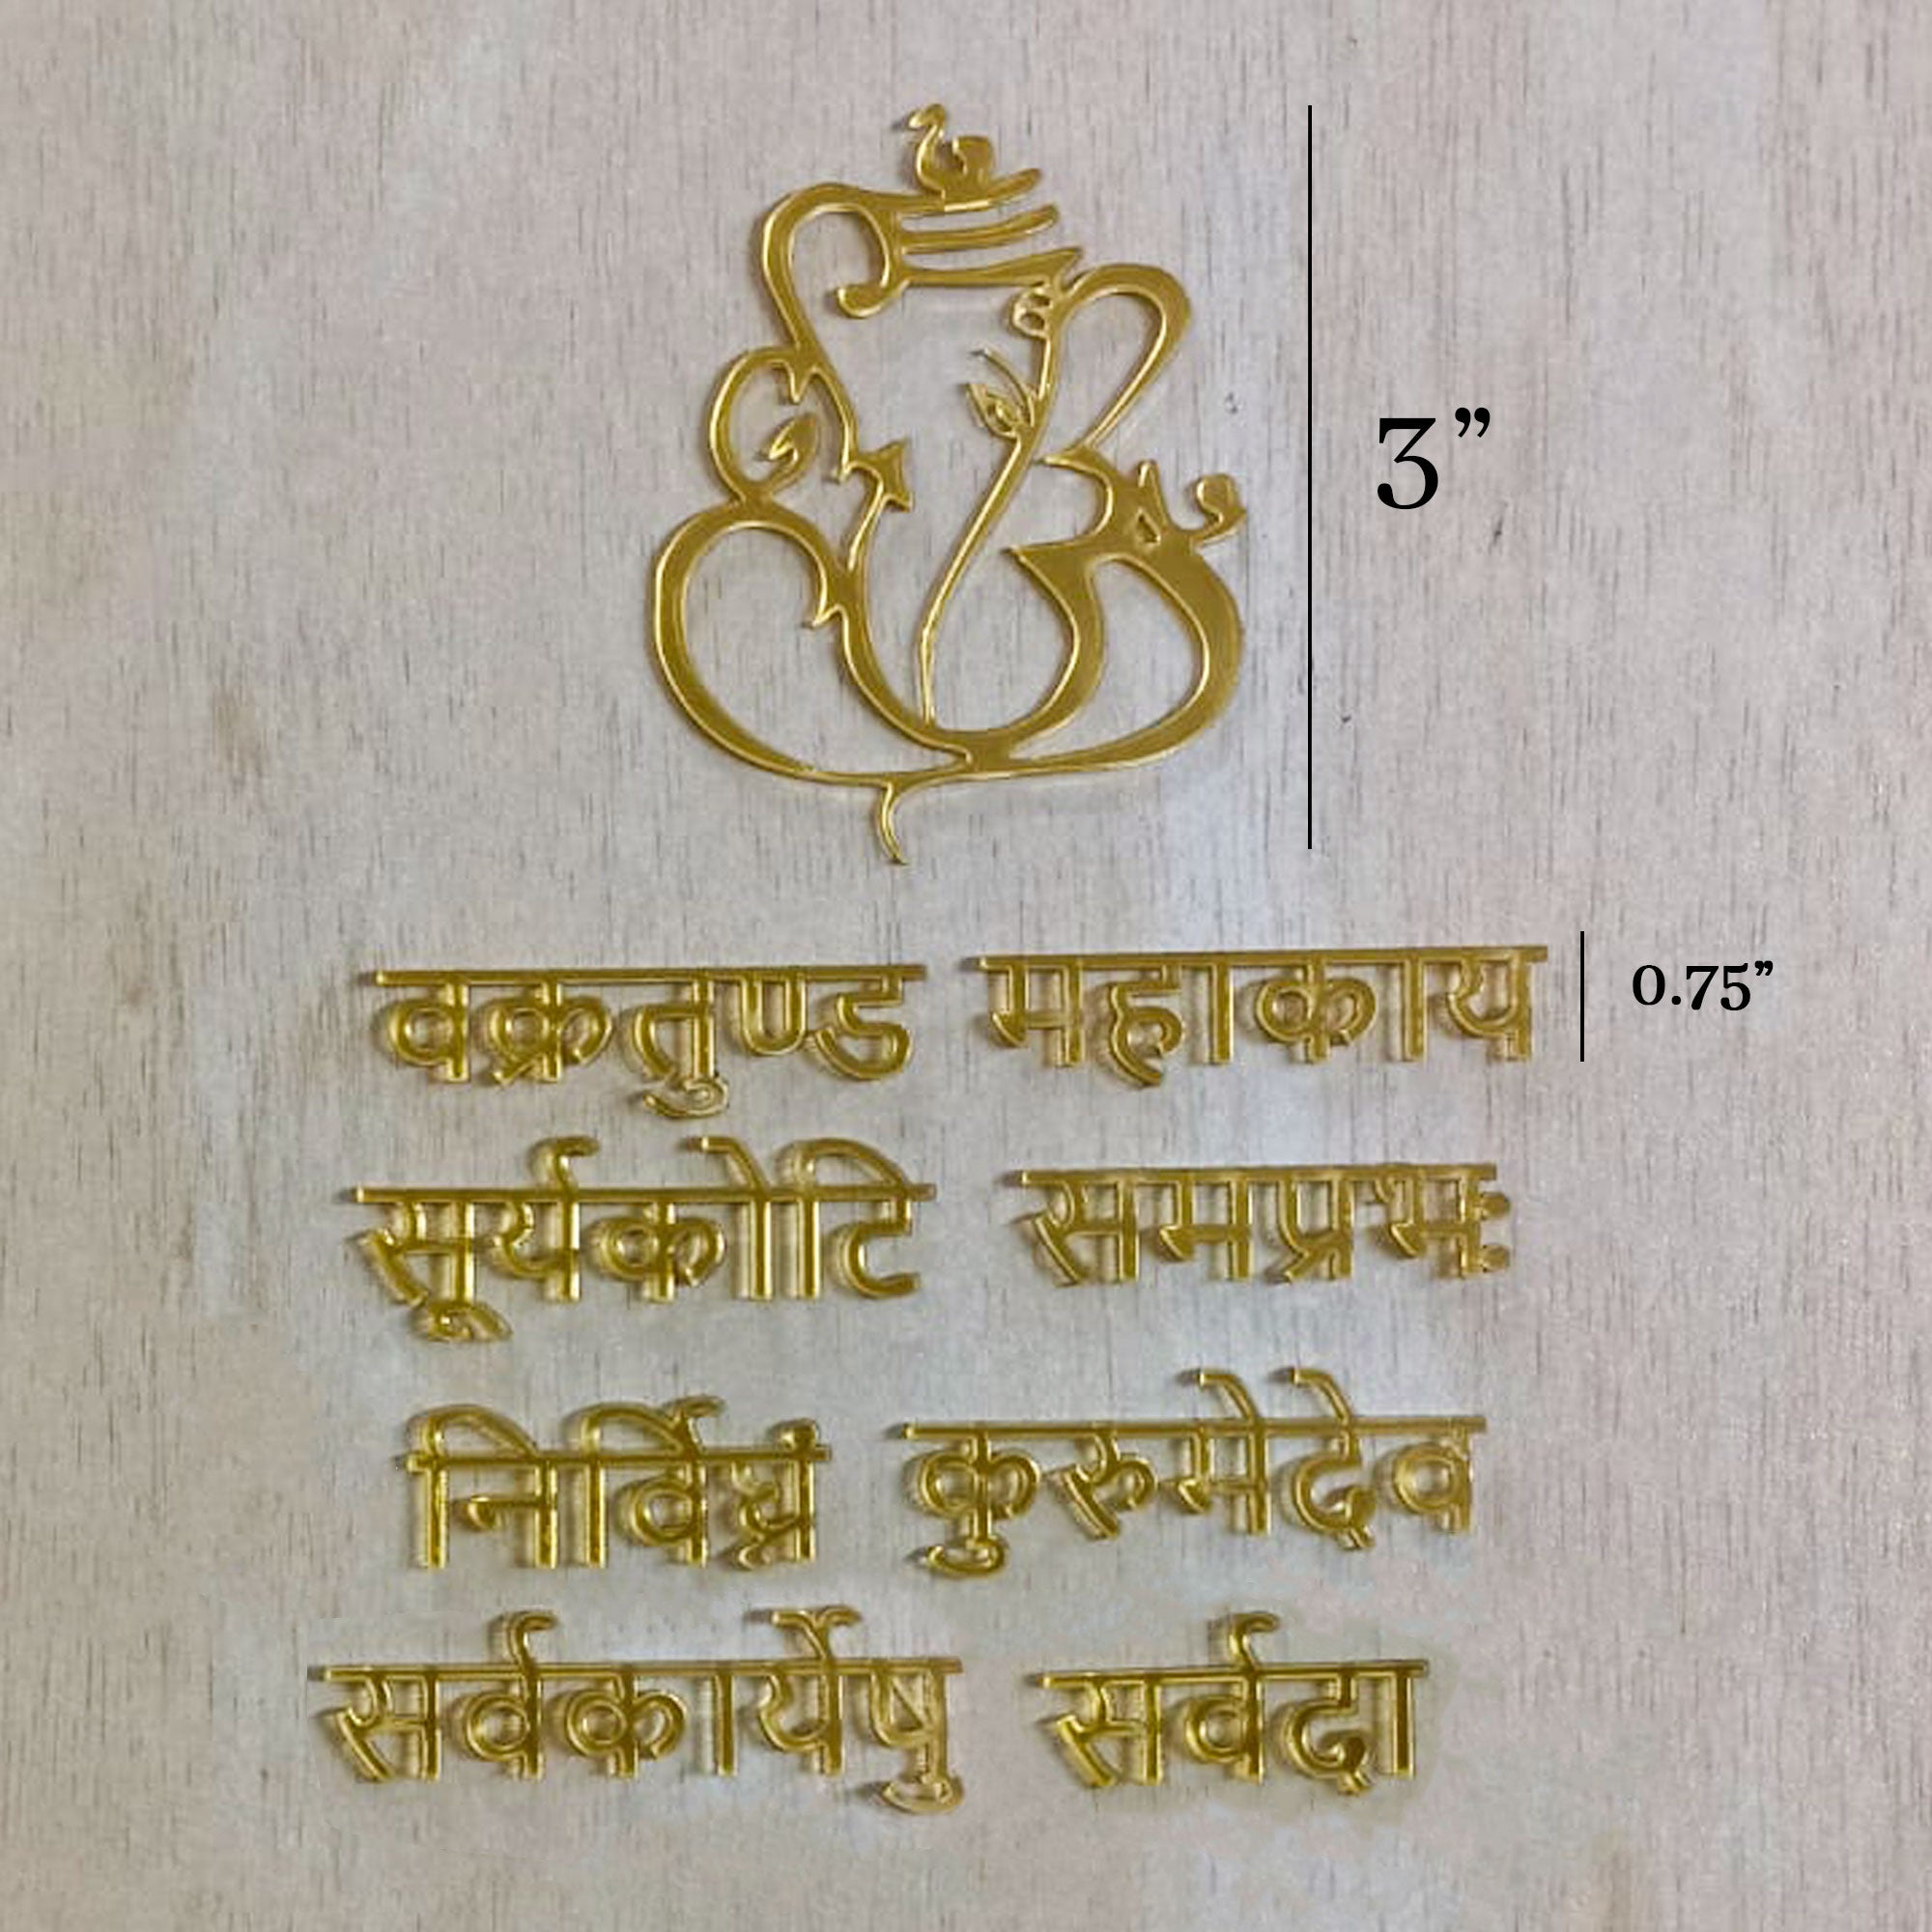 3”
वक्रतुण्ड महाकाय
0.75”
सूर्यकोटि समप्रभः
निर्विघ्नं कुरुमेदेव
सर्वकार्येषु सर्वदा